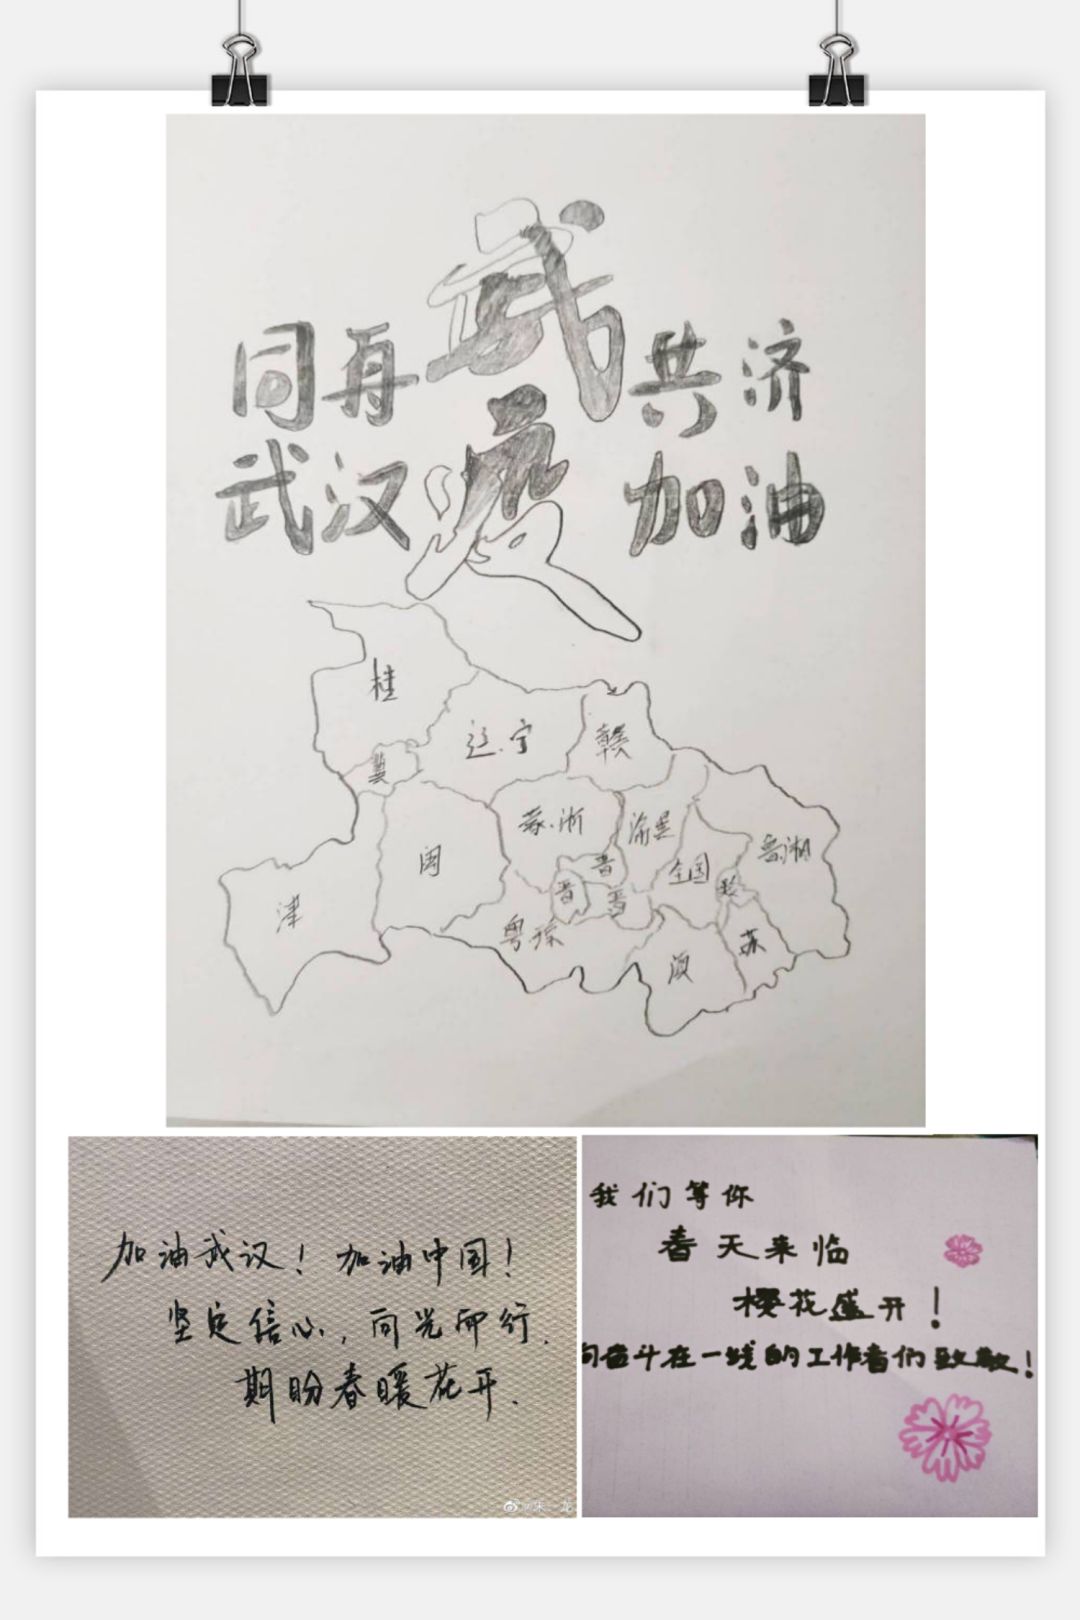 武
同舟 共济
疫
武汉 加油
桂
辽.宁
赣
冀
豪.浙
渝黑
鲁湘
闽
全国
晋
津
粤琼
苏
加油武汉！加油中国！
坚定信心，向光而行.
期盼春暖花开.
@朱一龙
我们等你
春天来临
樱花盛开！
向奋斗在一线的工作者们致敬！